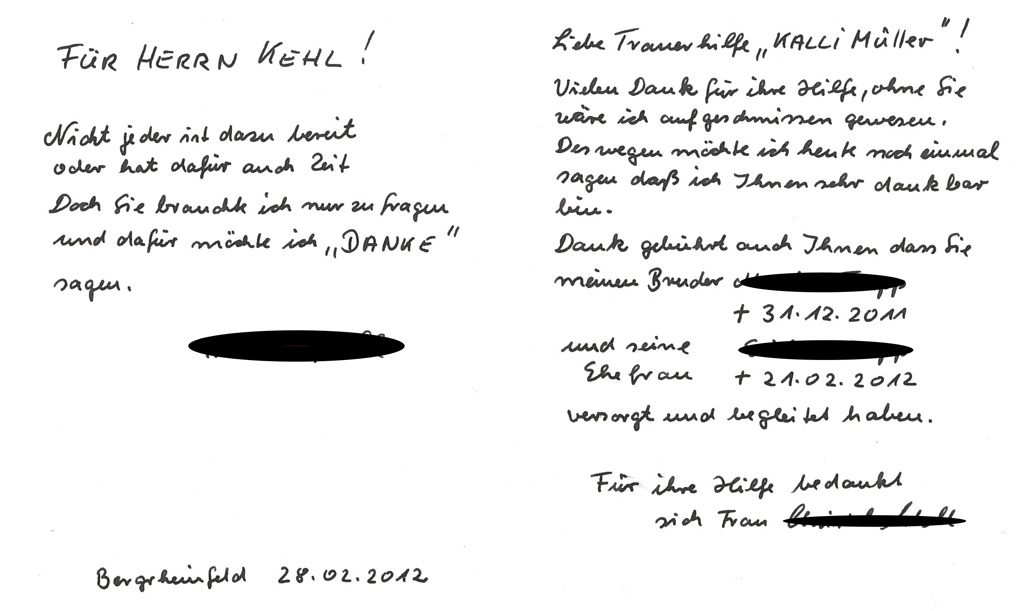 FÜR HERRN KEHL!
Nicht jeder ist dazu bereit
oder hat dafür auch Zeit
Doch Sie brauchte ich nur zu fragen
und dafür möchte ich „DANKE"
sagen.
Bergrheinfeld 28.02.2012
Liebe Trauerhilfe „KALLi Müller"!
Vielen Dank für ihre Hilfe, ohne Sie
wäre ich aufgeschmissen gewesen.
Deswegen möchte ich heute noch einmal
sagen daß ich Ihnen sehr dankbar
bin.
Dank gebührt auch Ihnen dass Sie
meinen Bruder
+ 31.12.2011
und seine
Ehefrau + 21.02.2012
versorgt und begleitet haben.
Für ihre Hilfe bedankt
sich Frau